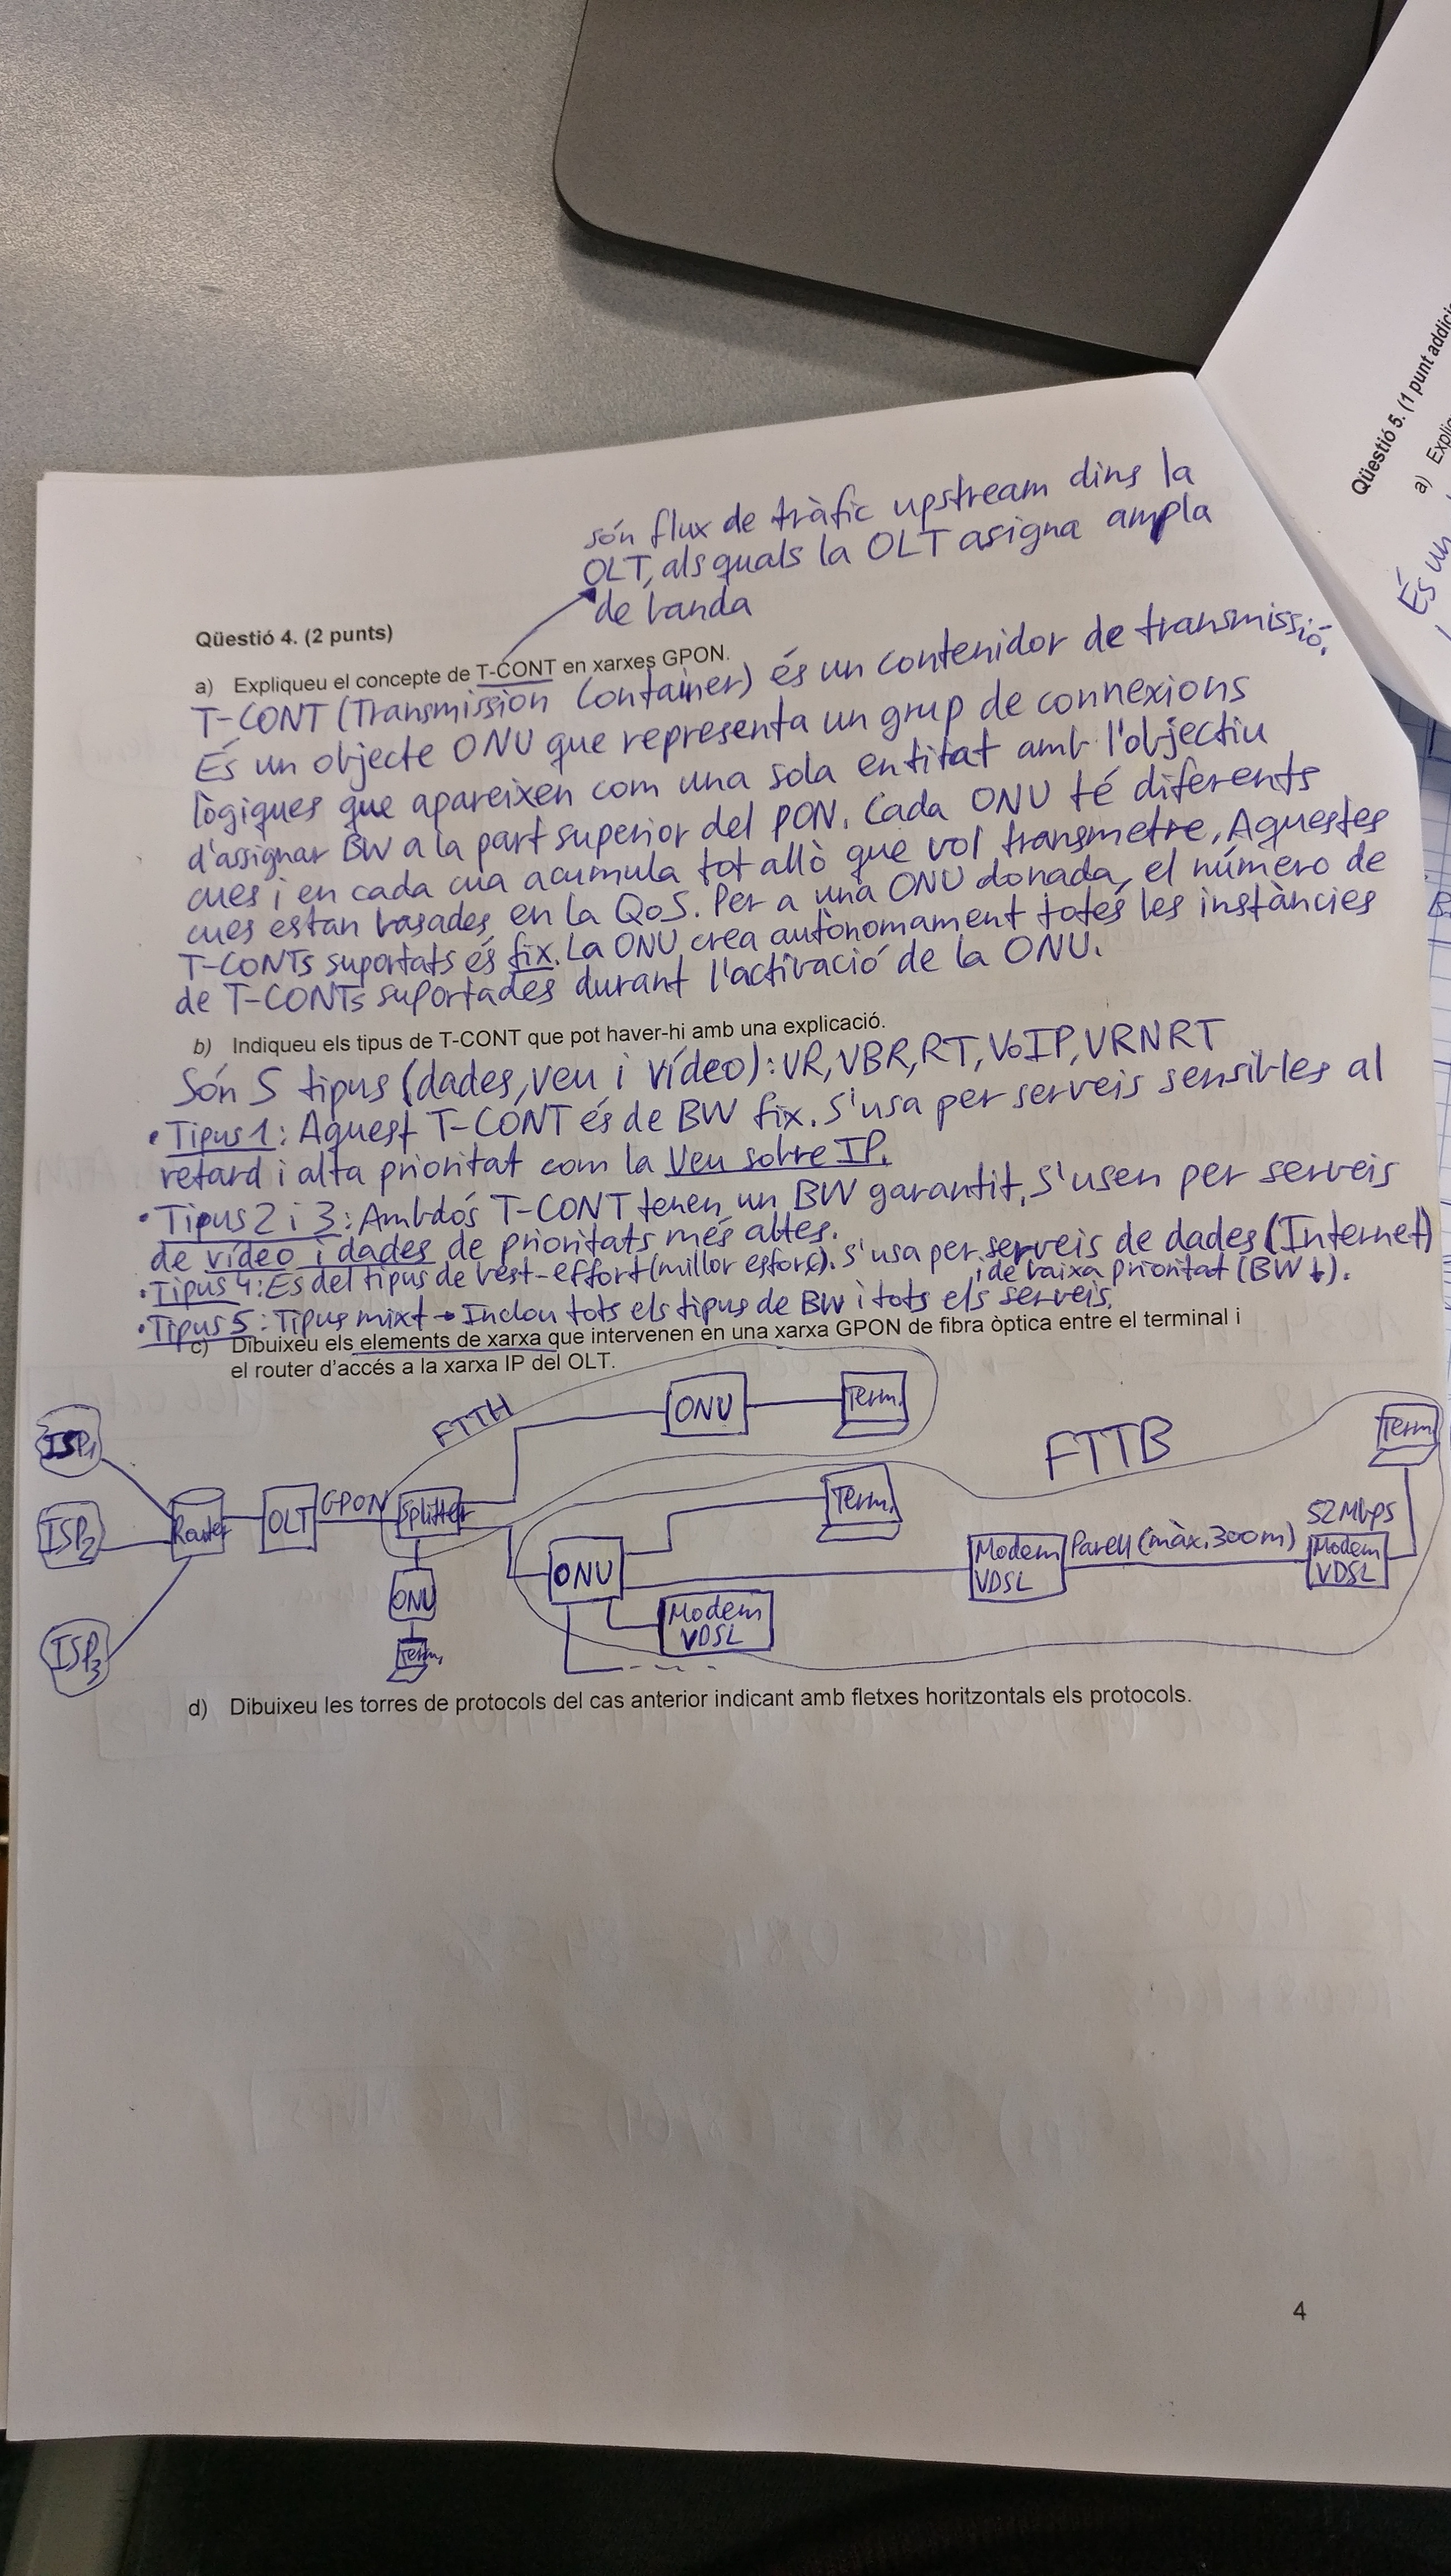 són flux de tràfic upstream dins la
OLT, als quals la OLT asigna ampla
de banda
Qüestió 4. (2 punts)
a) Expliqueu el concepte de T-CONT en xarxes GPON.
T-CONT (Transmission Container) és un contenidor de transmissió.
És un objecte ONU que representa un grup de connexions
lògiques que apareixen com una sola entitat amb l'objectiu
d'assignar BW a la part superior del PON. Cada ONU té diferents
cues i en cada cua acumula tot allò que vol transmetre, Aquestes
cues estan basades en la QoS. Per a una ONU donada, el número de
T-CONTs suportats és fix. La ONU crea autònomament totes les instàncies
de T-CONTs suportades durant l'activació de la ONU.
b) Indiqueu els tipus de T-CONT que pot haver-hi amb una explicació.
Són 5 tipus (dades, veu i vídeo): VR, VBR, RT, VoIP, VRNRT
• Tipus 1: Aquest T-CONT és de BW fix. S'usa per serveis sensibles al
retard i alta prioritat com la Veu sobre IP.
• Tipus 2 i 3: Ambdós T-CONT tenen un BW garantit, s'usen per serveis
de vídeo i dades de prioritats més altes.
• Tipus 4: És del tipus de best-effort (millor esforç). S'usa per serveis de dades (Internet)
i de baixa prioritat (BW ↓).
• Tipus 5: Tipus mixt → Inclou tots els tipus de BW i tots els serveis.
c) Dibuixeu els elements de xarxa que intervenen en una xarxa GPON de fibra òptica entre el terminal i
el router d'accés a la xarxa IP del OLT.
FTTH
ONU
Term.
FTTB
Term.
ISP1
ISP2
ISP3
Router
OLT
GPON
Splitter
ONU
Term.
ONU
Term.
Modem
VDSL
Modem
VDSL
Parell (màx. 300m)
52 Mbps
Modem
VDSL
d) Dibuixeu les torres de protocols del cas anterior indicant amb fletxes horitzontals els protocols.
4
Qüestió 5. (1 punt addici
a) Expliq
És un